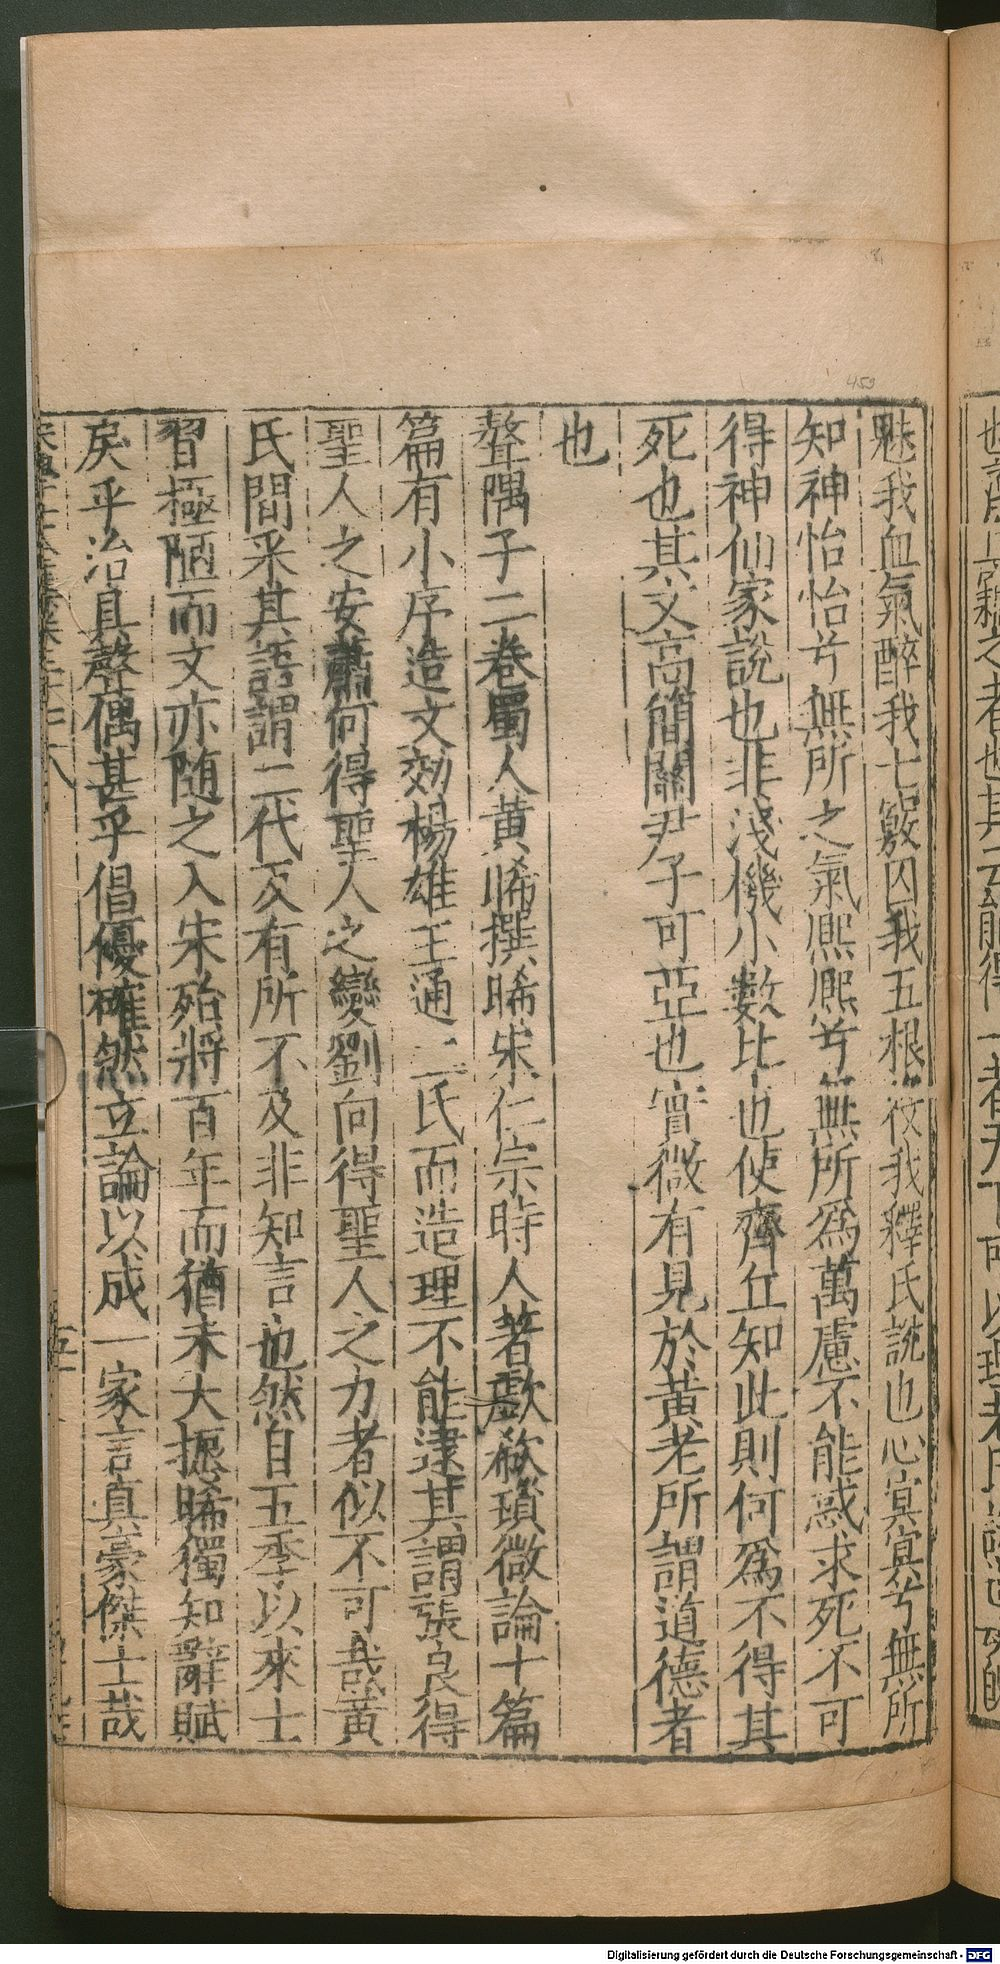 魅我血氣醉我七竅囚我五根役我釋氏說也心冥冥兮無所
知神怡怡兮無所之氣熈熈兮無所為萬慮不能惑求死不可
得神仙家說也非淺機小數比也使齊丘知此則何為不得其
死也其文高簡關尹子可亞也實微有見於黃老所謂道德者
也
聱隅子二卷蜀人黃晞撰晞宋仁宗時人著歔欷瑣微論十篇
篇有小序造文効楊雄王通二氏而造理不能逮其謂張良得
聖人之安蕭何得聖人之變劉向得聖人之力者似不可哉黃
氏間采其語謂二代亥有所不及非知言也然自五季以來士
習極陋而文亦随之入宋殆將百年而猶未大振晞獨知辭賦
戾乎治具聲偶甚乎倡優確然立論以成一家言真豪傑士哉
宋學士文集卷二十八
五
459
Digitalisierung gefördert durch die Deutsche Forschungsgemeinschaft - DFG